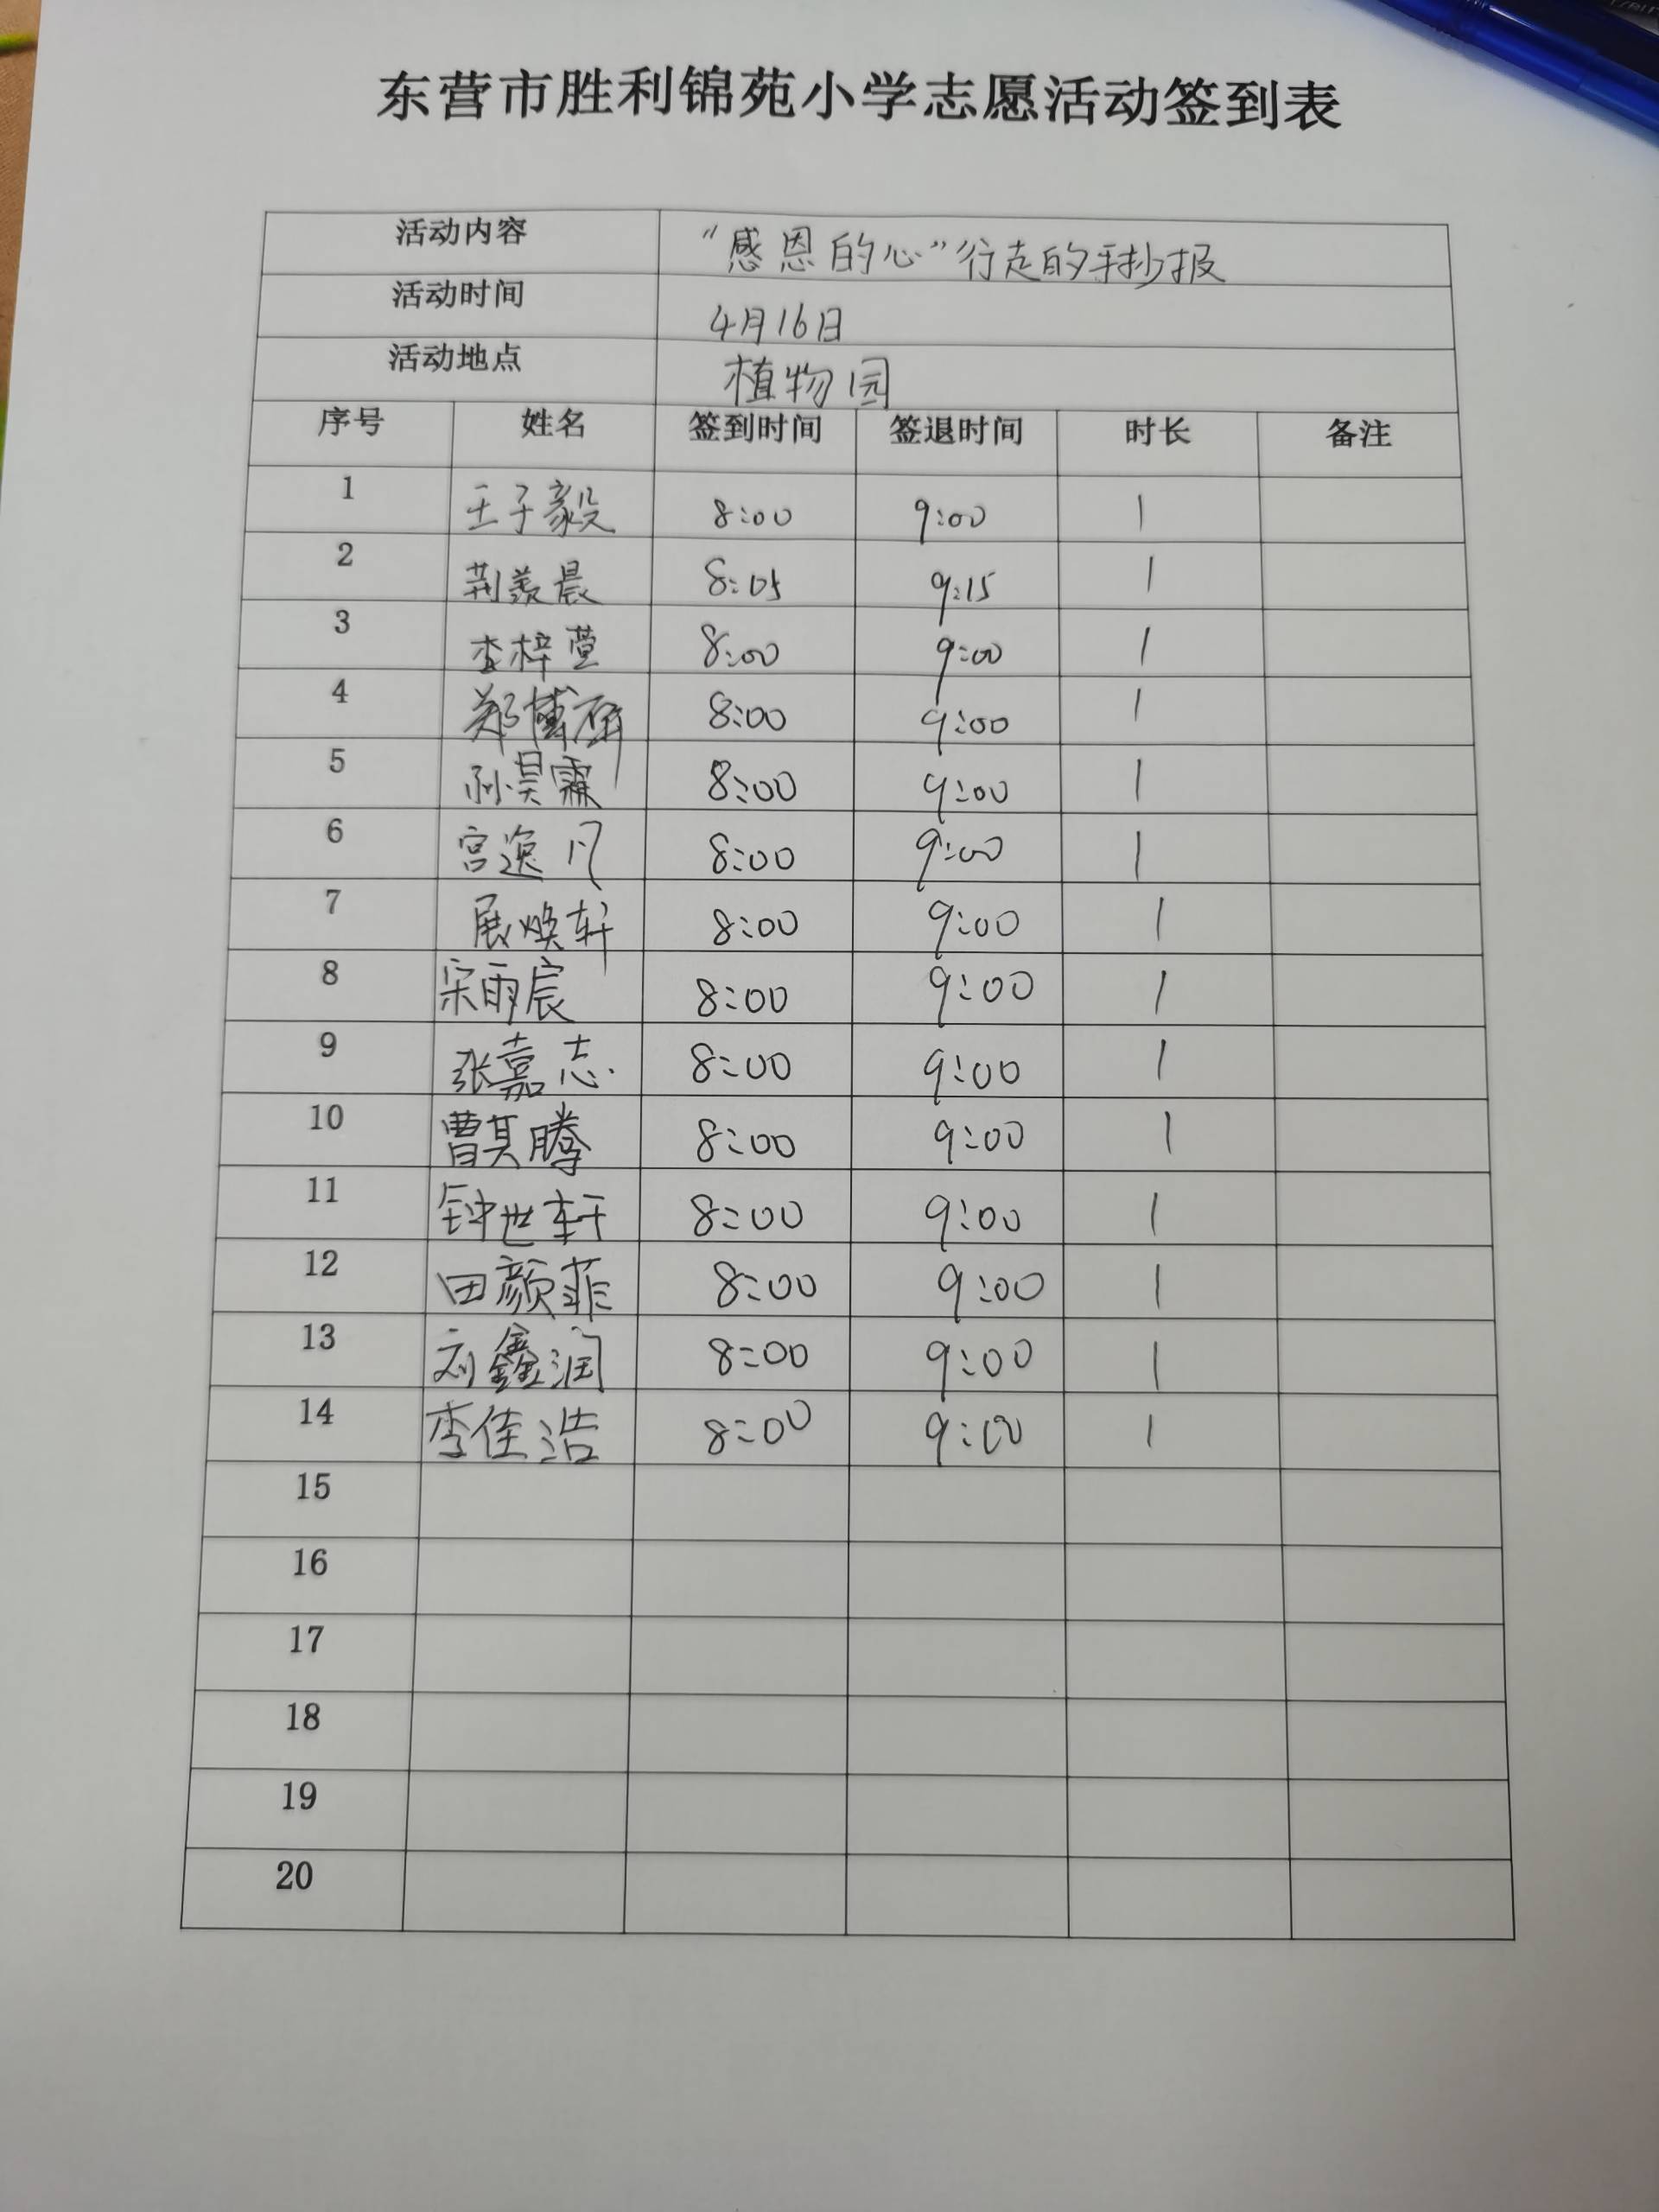 东营市胜利锦苑小学志愿活动签到表
活动内容 “感恩的心”行走的手抄报
活动时间 4月16日
活动地点 植物园
序号 姓名 签到时间 签退时间 时长 备注
1 王子毅 8:00 9:00 1
2 荆羡晨 8:05 9:15 1
3 李梓萱 8:00 9:00 1
4 郑博 8:00 9:00 1
5 孙昊霖 8:00 9:00 1
6 宫逸凡 8:00 9:00 1
7 展焕轩 8:00 9:00 1
8 宋雨宸 8:00 9:00 1
9 张嘉志 8:00 9:00 1
10 曹其腾 8:00 9:00 1
11 钟世轩 8:00 9:00 1
12 田颜菲 8:00 9:00 1
13 刘鑫润 8:00 9:00 1
14 李佳浩 8:00 9:00 1
15
16
17
18
19
20